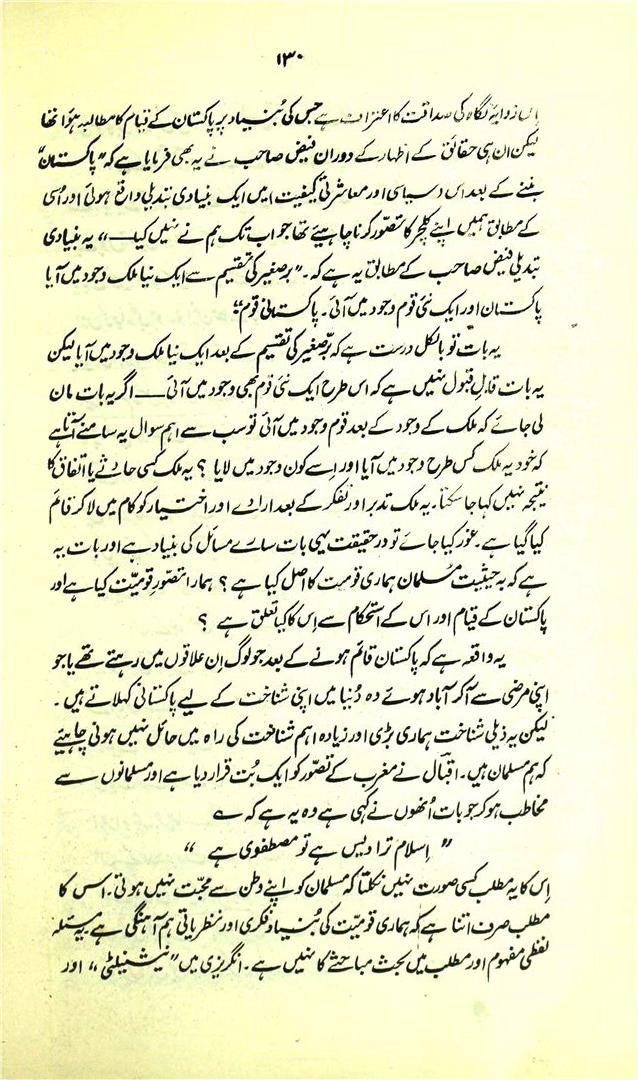 ۱۳۰
اِس زوایۂ نگاہ کی صداقت کا اعتراف ہے جس کی بُنیاد پر پاکستان کے قیام کا مطالبہ ہوا تھا
لیکن ان ہی حقائق کے اظہار کے دوران فیض صاحب نے یہ بھی فرمایا ہے کہ "پاکستان
بننے کے بعد اس سیاسی اور معاشرتی کیفیت میں ایک بنیادی تبدیلی واقع ہوئی اور اُسی
کے مطابق ہمیں اپنے کلچر کا تصوّر کرنا چاہیئے تھا جو اب تک ہم نے نہیں کیا ——" یہ بنیادی
تبدیلی فیض صاحب کے مطابق یہ ہے کہ۔ "برصغیر کی تقسیم سے ایک نیا ملک وجود میں آیا
پاکستان اور ایک نئی قوم وجود میں آئی۔ پاکستانی قوم"
یہ بات تو بالکل درست ہے کہ برّصغیر کی تقسیم کے بعد ایک نیا ملک وجود میں آیا لیکن
یہ بات قابلِ قبول نہیں ہے کہ اس طرح ایک نئی قوم بھی وجود میں آئی —— اگر یہ بات مان
لی جائے کہ ملک کے وجود کے بعد قوم وجود میں آئی تو سب سے اہم سوال یہ سامنے آتا ہے
کہ خود یہ ملک کس طرح وجود میں آیا اور اِسے کون وجود میں لایا ؟ یہ ملک کسی حادثے یا اتفاق کا
نتیجہ نہیں کہا جا سکتا۔ یہ ملک تدبر اور تفکر کے بعد ارادے اور اختیار کو کام میں لا کر قائم
کیا گیا ہے۔ غور کیا جائے تو درحقیقت یہی بات سارے مسائل کی بنیاد ہے اور بات یہ
ہے کہ بہ حیثیت مُسلمان ہماری قومیت کا اصل کیا ہے ؟ ہمارا تصوّرِ قومیّت کیا ہے اور
پاکستان کے قیام اور اس کے استحکام سے اِس کا کیا تعلق ہے ؟
یہ واقعہ ہے کہ پاکستان قائم ہونے کے بعد جو لوگ اِن علاقوں میں رہتے تھے یا جو
اپنی مرضی سے آکر آباد ہوئے وہ دُنیا میں اپنی شناخت کے لیے پاکستانی کہلاتے ہیں۔
لیکن یہ ذیلی شناخت ہماری بڑی اور زیادہ اہم شناخت کی راہ میں حائل نہیں ہونی چاہیئے
کہ ہم مسلمان ہیں۔ اقبال نے مغرب کے تصوّر کو ایک بُت قرار دیا ہے اور مسلمانوں سے
مخاطب ہو کر جو بات اُنھوں نے کہی ہے وہ یہ ہے کہ ؎
"اِسلام ترا دیس ہے تو مصطفوی ہے"
اِس کا یہ مطلب کسی صورت نہیں نکلتا کہ مسلمان کو اپنے وطن سے محبّت نہیں ہوتی۔ اس کا
مطلب صرف اتنا ہے کہ ہماری قومیّت کی بُنیاد فکری اور نظریاتی ہم آہنگی ہے۔ یہ مسئلہ
لفظی مفہوم اور مطلب میں بحث مباحثے کا نہیں ہے۔ انگریزی میں "نیشنیلٹی" اور